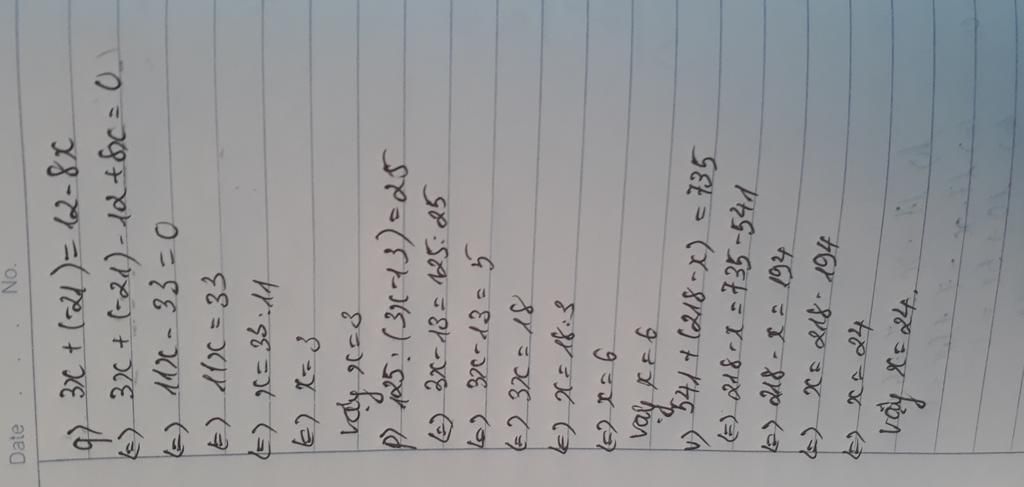 Date . . . No.
q) 3x + (-21) = 12 - 8x
(=) 3x + (-21) - 12 + 8x = 0
(=) 11x - 33 = 0
(=) 11x = 33
(=) x = 33 : 11
(=) x = 3
Vậy x = 3
p) 125 : (3x - 13) = 25
(=) 3x - 13 = 125 : 25
(=) 3x - 13 = 5
(=) 3x = 18
(=) x = 18 : 3
(=) x = 6
Vậy x = 6
v) 541 + (218 - x) = 735
(=) 218 - x = 735 - 541
(=) 218 - x = 194
(=) x = 218 - 194
(=) x = 24
Vậy x = 24.